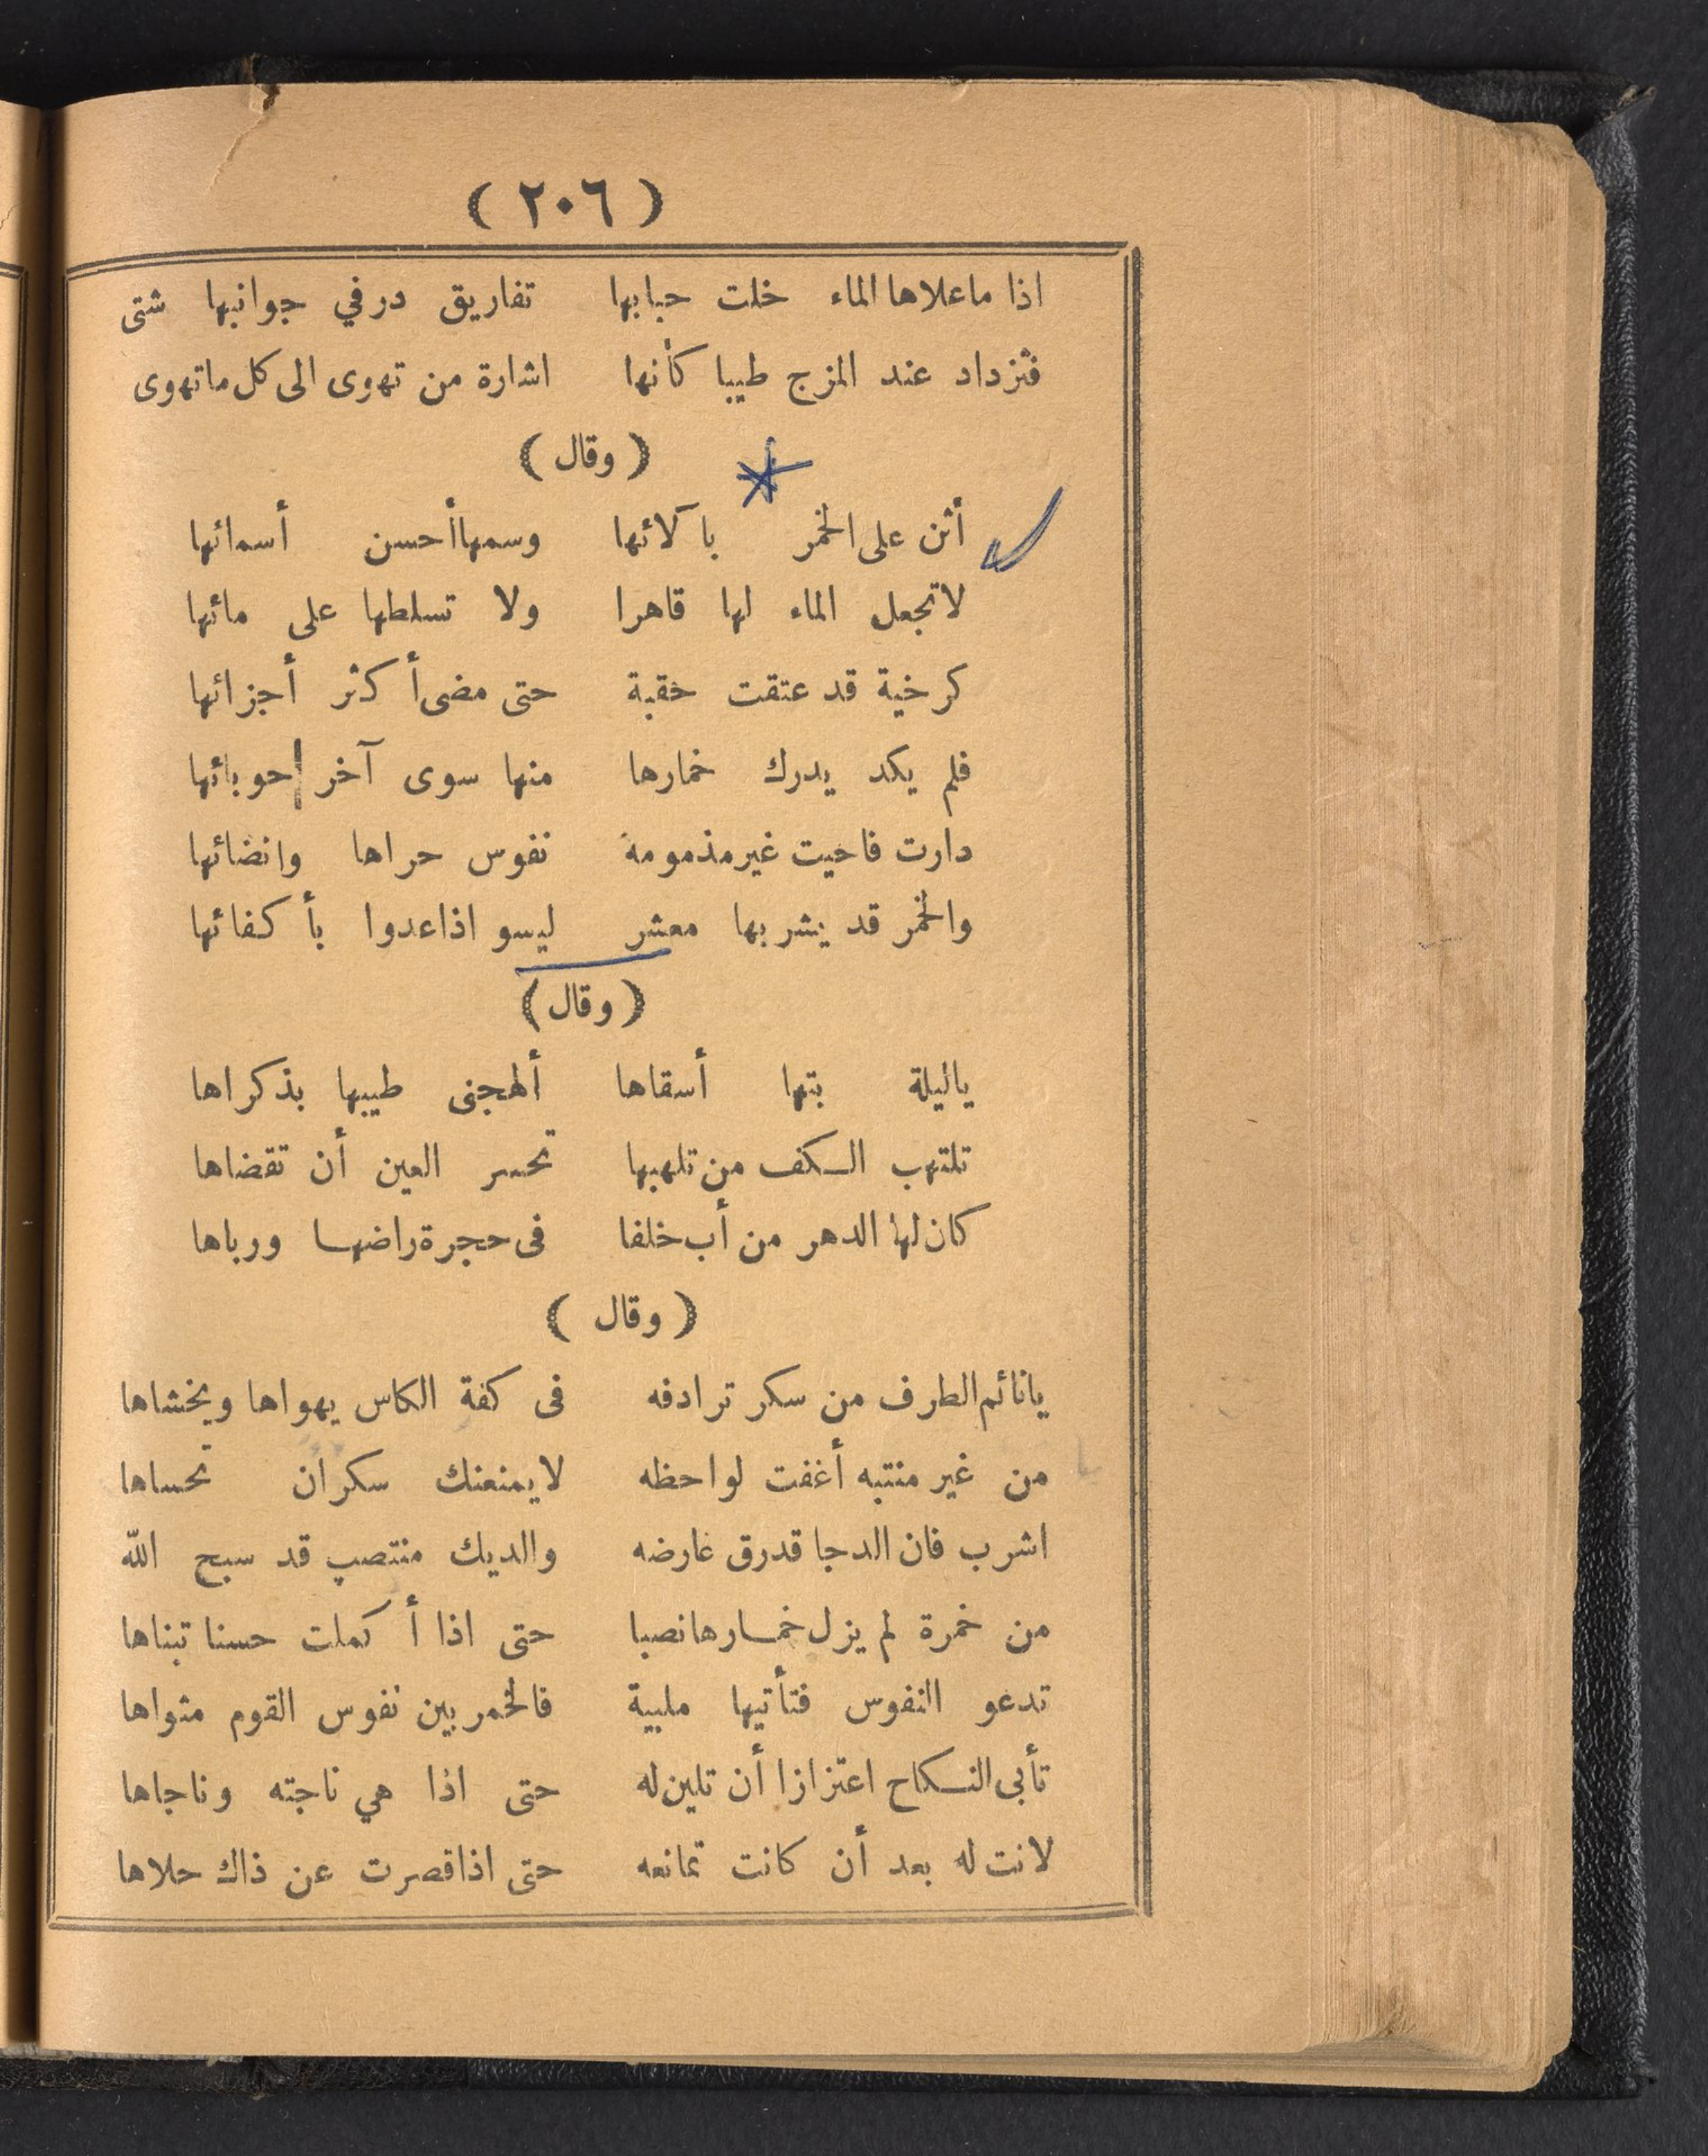 (٢٠٦)
اذا ماعلاها الماء خلت حبابها تفاريق در في جوانبها شتى
فتزداد عند المزج طيبا كأنها اشارة من تهوى الى كل ماتهوى
(وقال)
أثن على الخمر بآلائها وسمها أحسن أسمائها
لاتجعل الماء لها قاهرا ولا تسلطها على مائها
كرخية قد عتقت حقبة حتى مضى أكثر أجزائها
فلم يكد يدرك خمارها منها سوى آخر حوبائها
دارت فاحيت غير مذمومة نفوس حراها وانضائها
والخمر قد يشربها معشر ليسو اذاعدوا بأكفائها
(وقال)
ياليلة بتها أسقاها ألهجنى طيبها بذكراها
تلتهب الكف من تلهبها تحسر العين أن تقضاها
كان لها الدهر من أب خلفا فى حجرة راضها ورباها
(وقال)
يانائم الطرف من سكر ترادفه فى كفة الكاس يهواها ويخشاها
من غير منتبه أغفت لواحظه لايمنعنك سكران تحساها
اشرب فان الدجا قدرق عارضه والديك منتصب قد سبح الله
من خمرة لم يزل خمارها نصبا حتى اذا أكملت حسنا تبناها
تدعو النفوس فتأتيها ملبية فالخمر بين نفوس القوم مثواها
تأبى النكاح اعتزازا أن تلين له حتى اذا هي ناجته وناجاها
لانت له بعد أن كانت تمانعه حتى اذاقصرت عن ذاك حلاها